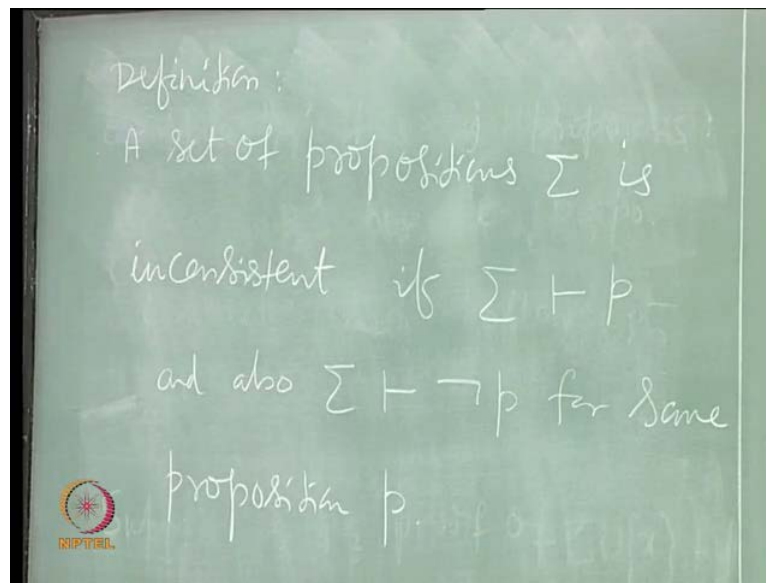 Definition:
A set of propositions Σ is
inconsistent if Σ ⊢ p
and also Σ ⊢ ¬p for some
proposition p.
NPTEL